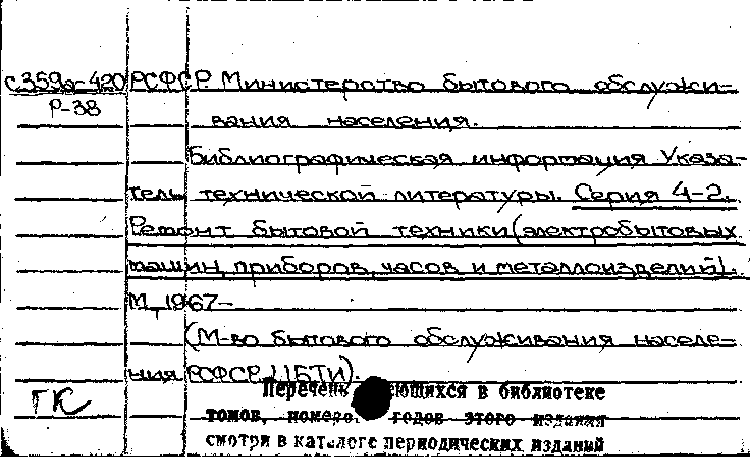 с359а-420 РСФСР. Министерство бытового обслужи-
Р-38
вания населения.
Библиографическая информация. Указа-
тель технической литературы. Серия 4-2.
Ремонт бытовой техники (электробытовых
машин, приборов, часов и металлоизделий).
М., 1967-
(М-во бытового обслуживания населе-
ния РСФСР. ЦБТИ).
ГК
Перечень ющихся в библиотеке
томов, номеро годов этого издания
смотри в каталоге периодических изданий